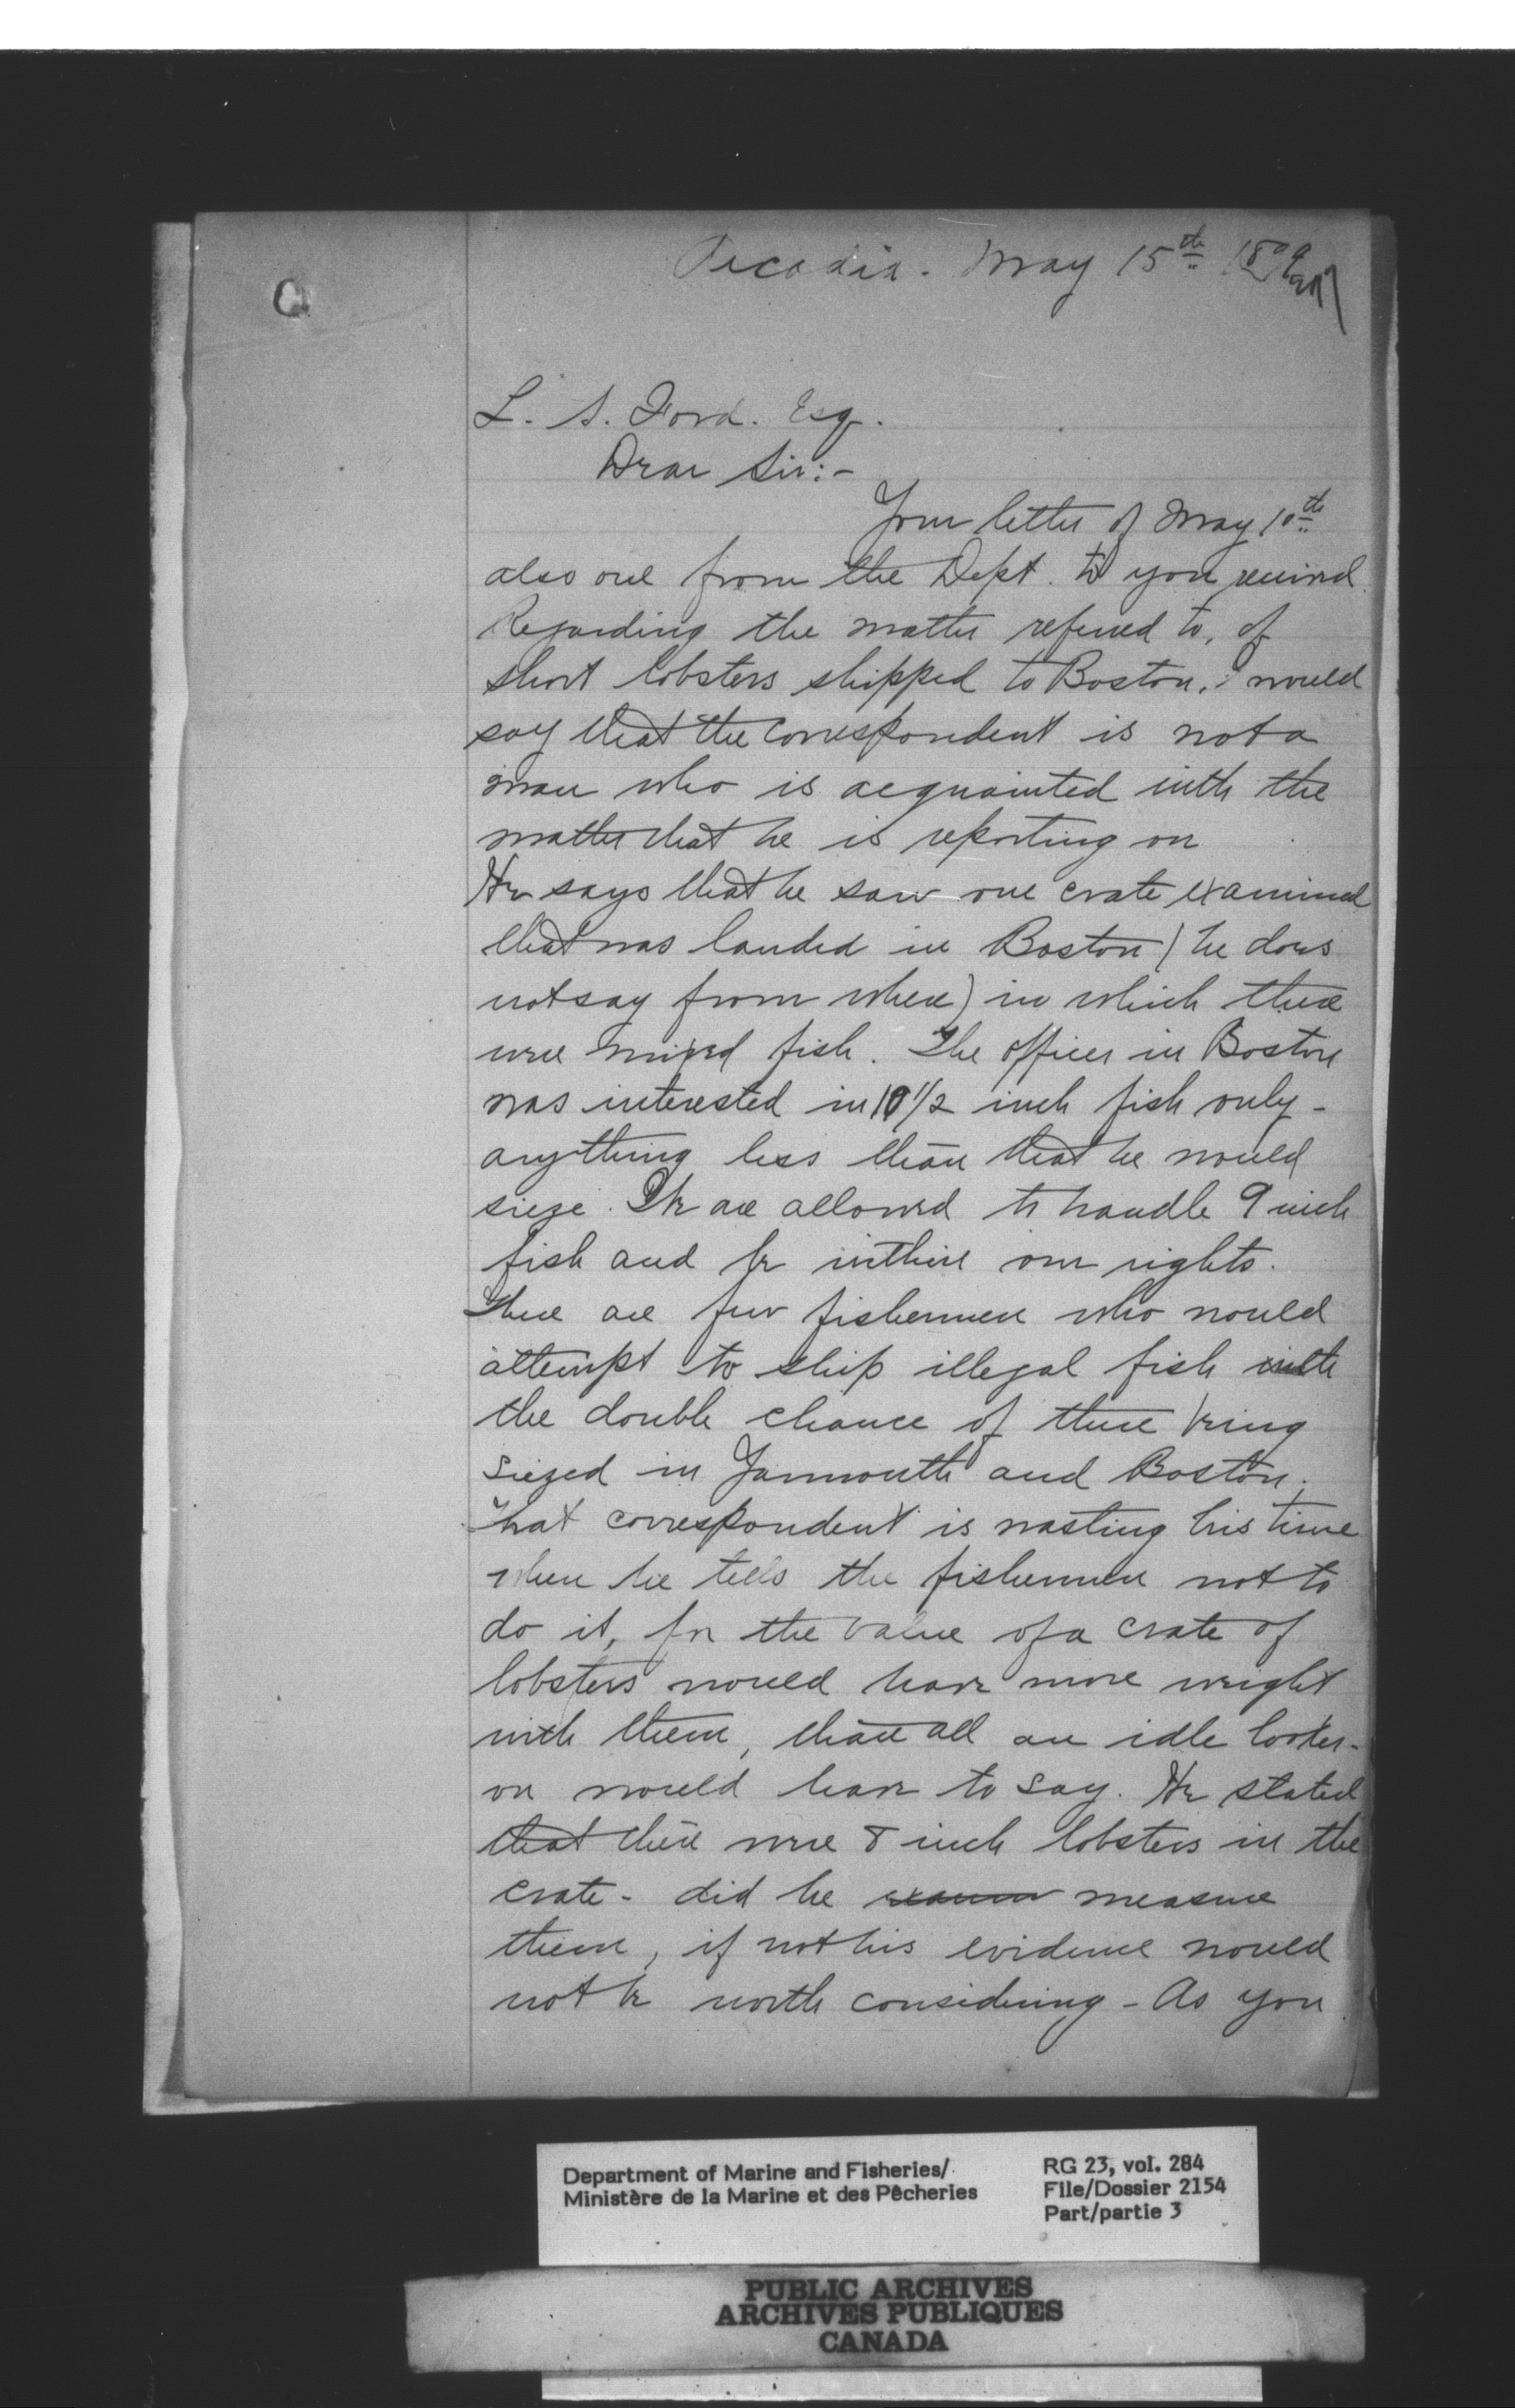 C
Arcadia. May 15th
L. S. Ford. Esq.
Dear Sir:-
Your letter of May 10th
also one from the Dept. to you received.
Regarding the matter referred to, of
short lobsters shipped to Boston, I would
say that the correspondent is not a
man who is acquainted with the
matter that he is reporting on
He says that he saw one crate examined
that was landed in Boston (he does
not say from where) in which there
were mixed fish. The officer in Boston
was interested in 10 1/2 inch fish only -
anything less than that he would
sieze. We are allowed to handle 9 inch
fish and be within our rights.
There are few fishermen who would
attempt to ship illegal fish with
the double chance of there being
siezed in Yarmouth and Boston.
That correspondent is wasting his time
when he tells the fishermen not to
do it, for the value of a crate of
lobsters would have more weight
with them, than all an idle looker-
on would have to say. He stated
that there were 8 inch lobsters in the
crate - did he measure
them, if not his evidence would
not be worth considering - As you
Department of Marine and Fisheries/
Ministère de la Marine et des Pêcheries
RG 23, vol. 284
File/Dossier 2154
Part/partie 3
PUBLIC ARCHIVES
ARCHIVES PUBLIQUES
CANADA